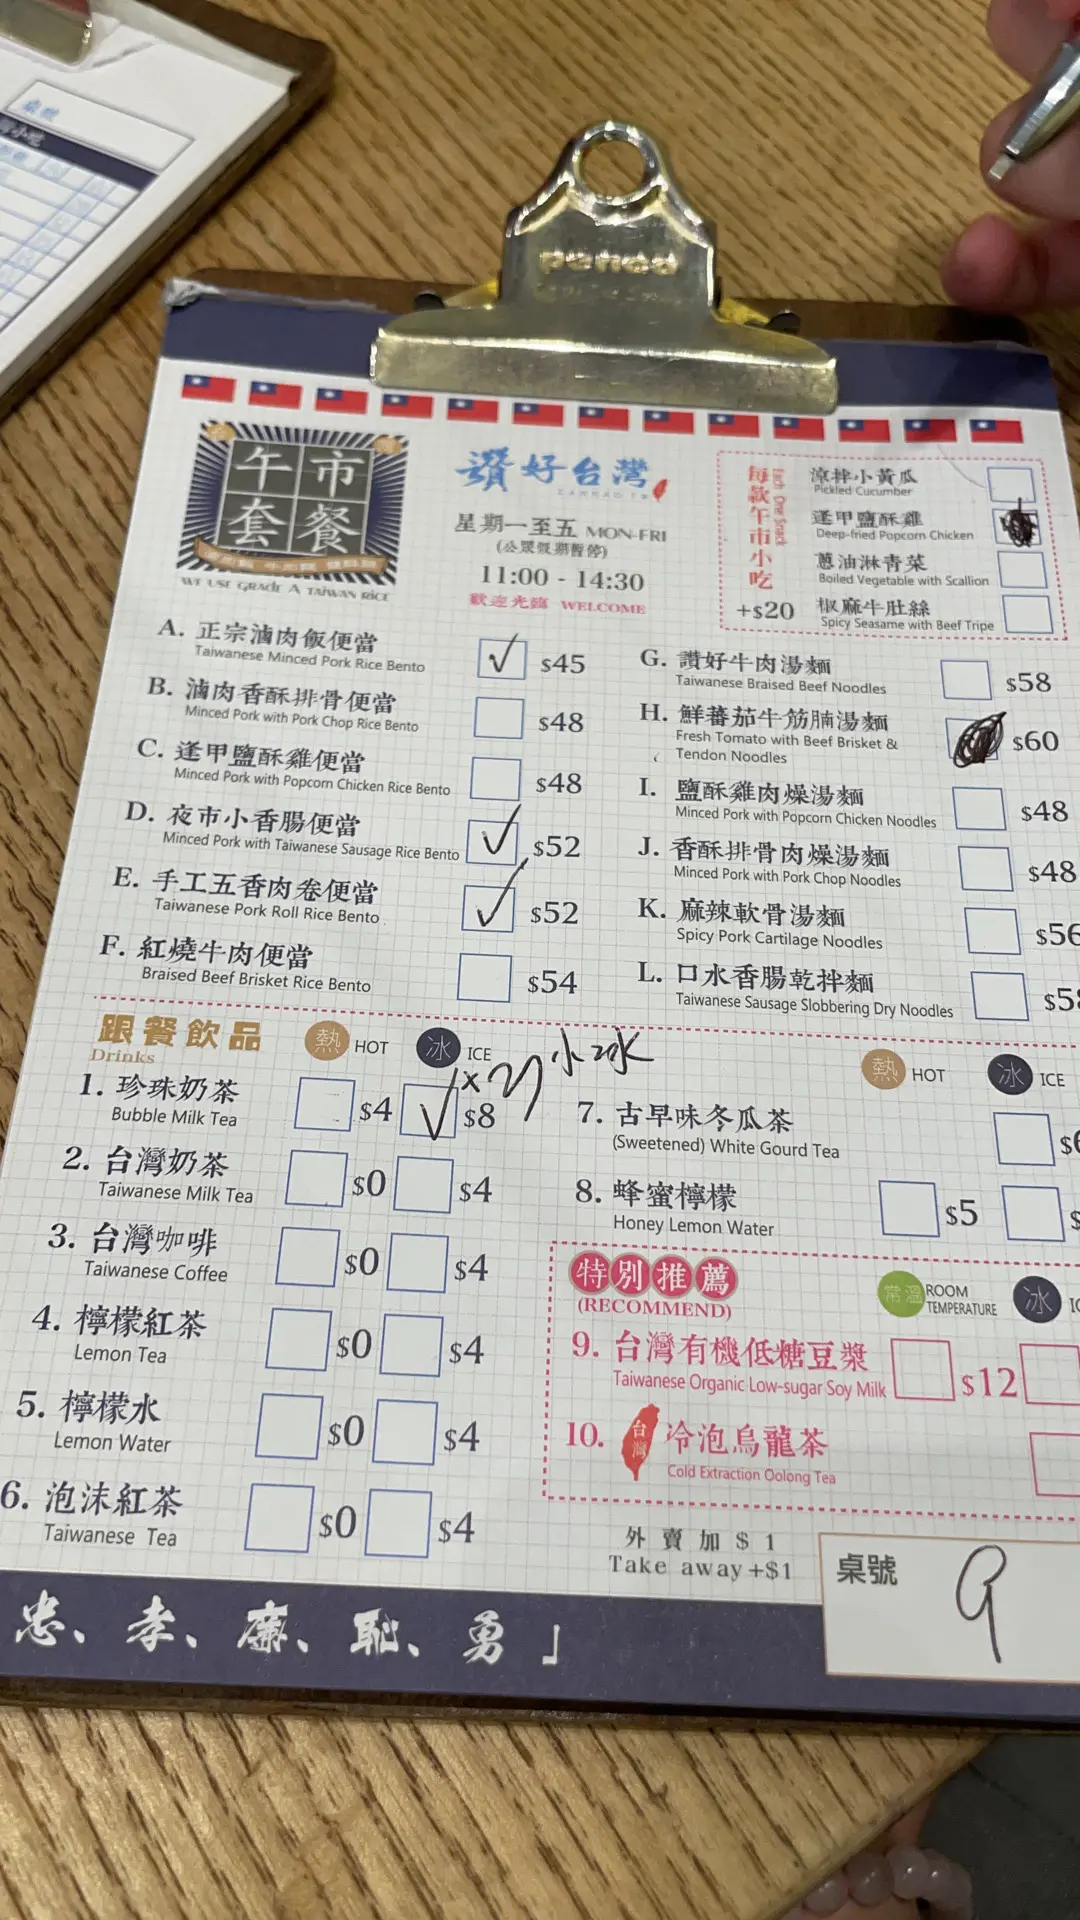 桌號
panda
午市
套餐
WE USE GRADE A TAIWAN RICE
讚好台灣
星期一至五 MON-FRI
(公眾假期暫停)
11:00 - 14:30
歡迎光臨 WELCOME
每款午市小吃
Each One Snack
+$20
涼拌小黃瓜
Pickled Cucumber
逢甲鹽酥雞
Deep-fried Popcorn Chicken
蔥油淋青菜
Boiled Vegetable with Scallion
椒麻牛肚絲
Spicy Seasame with Beef Tripe
A. 正宗滷肉飯便當 $45
Taiwanese Minced Pork Rice Bento
B. 滷肉香酥排骨便當 $48
Minced Pork with Pork Chop Rice Bento
C. 逢甲鹽酥雞便當 $48
Minced Pork with Popcorn Chicken Rice Bento
D. 夜市小香腸便當 $52
Minced Pork with Taiwanese Sausage Rice Bento
E. 手工五香肉卷便當 $52
Taiwanese Pork Roll Rice Bento
F. 紅燒牛肉便當 $54
Braised Beef Brisket Rice Bento
G. 讚好牛肉湯麵 $58
Taiwanese Braised Beef Noodles
H. 鮮蕃茄牛筋腩湯麵 $60
Fresh Tomato with Beef Brisket &
Tendon Noodles
I. 鹽酥雞肉燥湯麵 $48
Minced Pork with Popcorn Chicken Noodles
J. 香酥排骨肉燥湯麵 $48
Minced Pork with Pork Chop Noodles
K. 麻辣軟骨湯麵 $56
Spicy Pork Cartilage Noodles
L. 口水香腸乾拌麵
Taiwanese Sausage Slobbering Dry Noodles
跟餐飲品 熱 HOT 冰 ICE
Drinks
1. 珍珠奶茶 $4 $8
Bubble Milk Tea
小冰
2. 台灣奶茶 $0 $4
Taiwanese Milk Tea
3. 台灣咖啡 $0 $4
Taiwanese Coffee
4. 檸檬紅茶 $0 $4
Lemon Tea
5. 檸檬水 $0 $4
Lemon Water
6. 泡沫紅茶 $0 $4
Taiwanese Tea
熱 HOT 冰 ICE
7. 古早味冬瓜茶
(Sweetened) White Gourd Tea
8. 蜂蜜檸檬 $5
Honey Lemon Water
特別推薦
(RECOMMEND)
常溫 ROOM TEMPERATURE 冰
9. 台灣有機低糖豆漿 $12
Taiwanese Organic Low-sugar Soy Milk
10. 台灣 冷泡烏龍茶
Cold Extraction Oolong Tea
外賣加 $ 1
Take away +$1
桌號 9
忠、孝、廉、恥、勇」